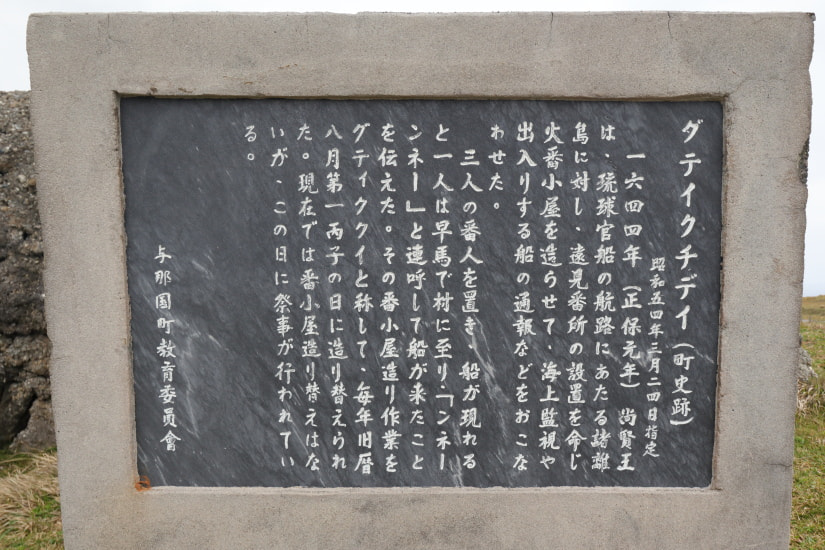 ダテイクチデイ（町史跡）
昭和五四年三月二四日指定
一六四四年（正保元年）尚賢王
は、琉球官船の航路にあたる諸離
島に対し、遠見番所の設置を命じ
火番小屋を造らせて、海上監視や
出入りする船の通報などをおこな
わせた。
三人の番人を置き、船が現れる
と一人は早馬で村に至り「ンネー
ンネー」と連呼して船が来たこと
を伝えた。その番小屋造り作業を
グティククイと称して、毎年旧暦
八月第一丙子の日に造り替えられ
た。現在では番小屋造り替えはな
いが、この日に祭事が行われてい
る。
与那国町教育委員會